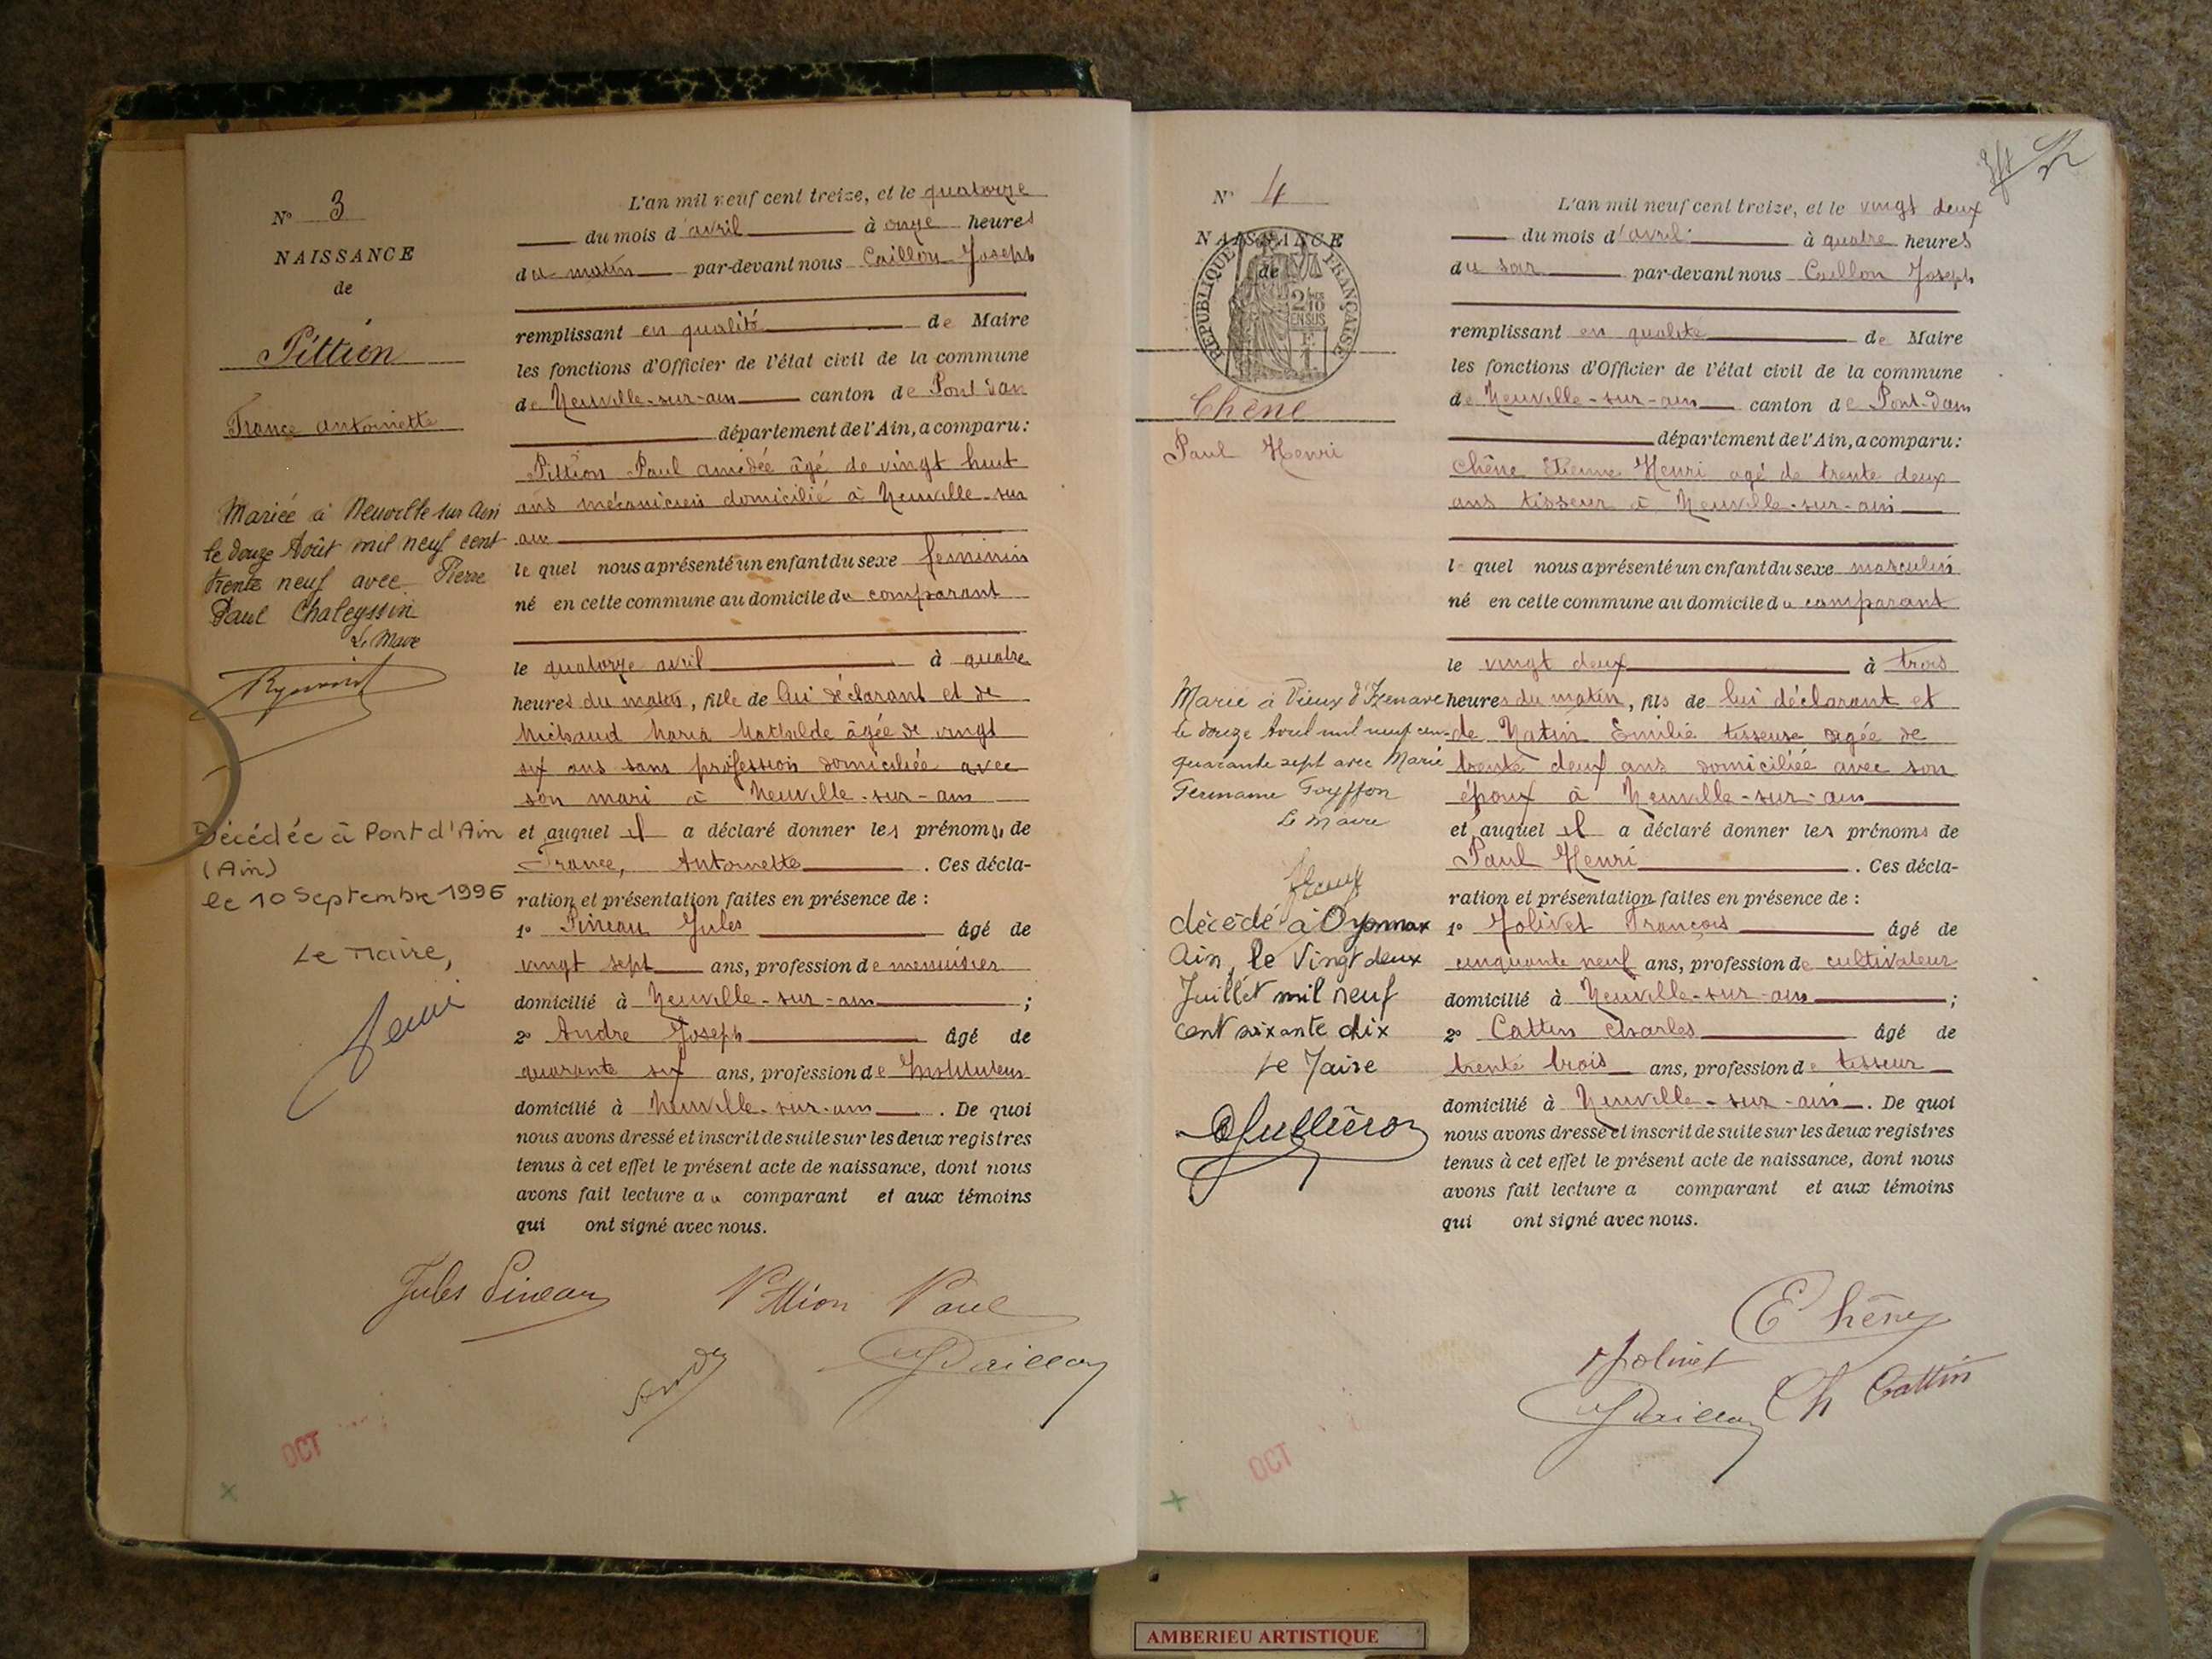 N° 3
NAISSANCE
de
Pittion
France antoinette
Mariée à Neuville sur Ain
le douze Août mil neuf cent
trente neuf avec Pierre
Paul Chaleyssin
Le Maire
Décédée à Pont d'Ain
(Ain)
le 10 Septembre 1996
Le Maire,
L'an mil neuf cent treize, et le quatorze
du mois d'avril à onze heures
du matin par-devant nous Caillon Joseph
remplissant en qualité de Maire
les fonctions d'Officier de l'état civil de la commune
de Neuville-sur-ain canton de Pont d'ain
département de l'Ain, a comparu :
Pittion Paul amédée âgé de vingt huit
ans mécanicien domicilié à Neuville-sur
ain
le quel nous a présenté un enfant du sexe feminin
né en cette commune au domicile du comparant
le quatorze avril à quatre
heures du matin, fille de lui déclarant et de
Michaud Maria Mathilde âgée de vingt
six ans sans profession domiciliée avec
son mari à Neuville-sur-ain
et auquel il a déclaré donner les prénoms de
France, Antoinette . Ces décla-
ration et présentation faites en présence de :
1° Pineau Jules âgé de
vingt sept ans, profession de menuisier
domicilié à Neuville-sur-ain ;
2° Andre Joseph âgé de
quarante six ans, profession de Instituteur
domicilié à Neuville-sur-ain . De quoi
nous avons dressé et inscrit de suite sur les deux registres
tenus à cet effet le présent acte de naissance, dont nous
avons fait lecture au comparant et aux témoins
qui ont signé avec nous.
Jules Pineau Pittion Paul
André Caillon
OCT
N° 4
NAISSANCE
de
RÉPUBLIQUE FRANÇAISE
2/10
EN SUS
Chêne
Paul Henri
Marié à Vieux d'Izenave
le douze Avril mil neuf cent
quarante sept avec Marie
Germaine Goyffon
Le Maire
décédé à Oyonnax
Ain, le Vingt deux
Juillet mil neuf
cent soixante dix
Le Maire
L'an mil neuf cent treize, et le vingt deux
du mois d'avril à quatre heures
du soir par-devant nous Caillon Joseph
remplissant en qualité de Maire
les fonctions d'Officier de l'état civil de la commune
de Neuville-sur-ain canton de Pont-d'ain
département de l'Ain, a comparu :
Chêne Etienne Henri agé de trente deux
ans tisseur à Neuville-sur-ain
l quel nous a présenté un enfant du sexe masculin
né en cette commune au domicile du comparant
le vingt deux à trois
heures du matin, fils de lui déclarant et
de Matin Emilie tisseuse agée de
trente deux ans domiciliée avec son
époux à Neuville-sur-ain
et auquel il a déclaré donner les prénoms de
Paul Henri . Ces décla-
ration et présentation faites en présence de :
1° Jolivet François âgé de
cinquante neuf ans, profession de cultivateur
domicilié à Neuville-sur-ain ;
2° Cattin Charles âgé de
trente trois ans, profession de tisseur
domicilié à Neuville-sur-ain . De quoi
nous avons dressé et inscrit de suite sur les deux registres
tenus à cet effet le présent acte de naissance, dont nous
avons fait lecture a comparant et aux témoins
qui ont signé avec nous.
E Chêne
Jolivet
Caillon Ch Cattin
OCT
AMBERIEU ARTISTIQUE